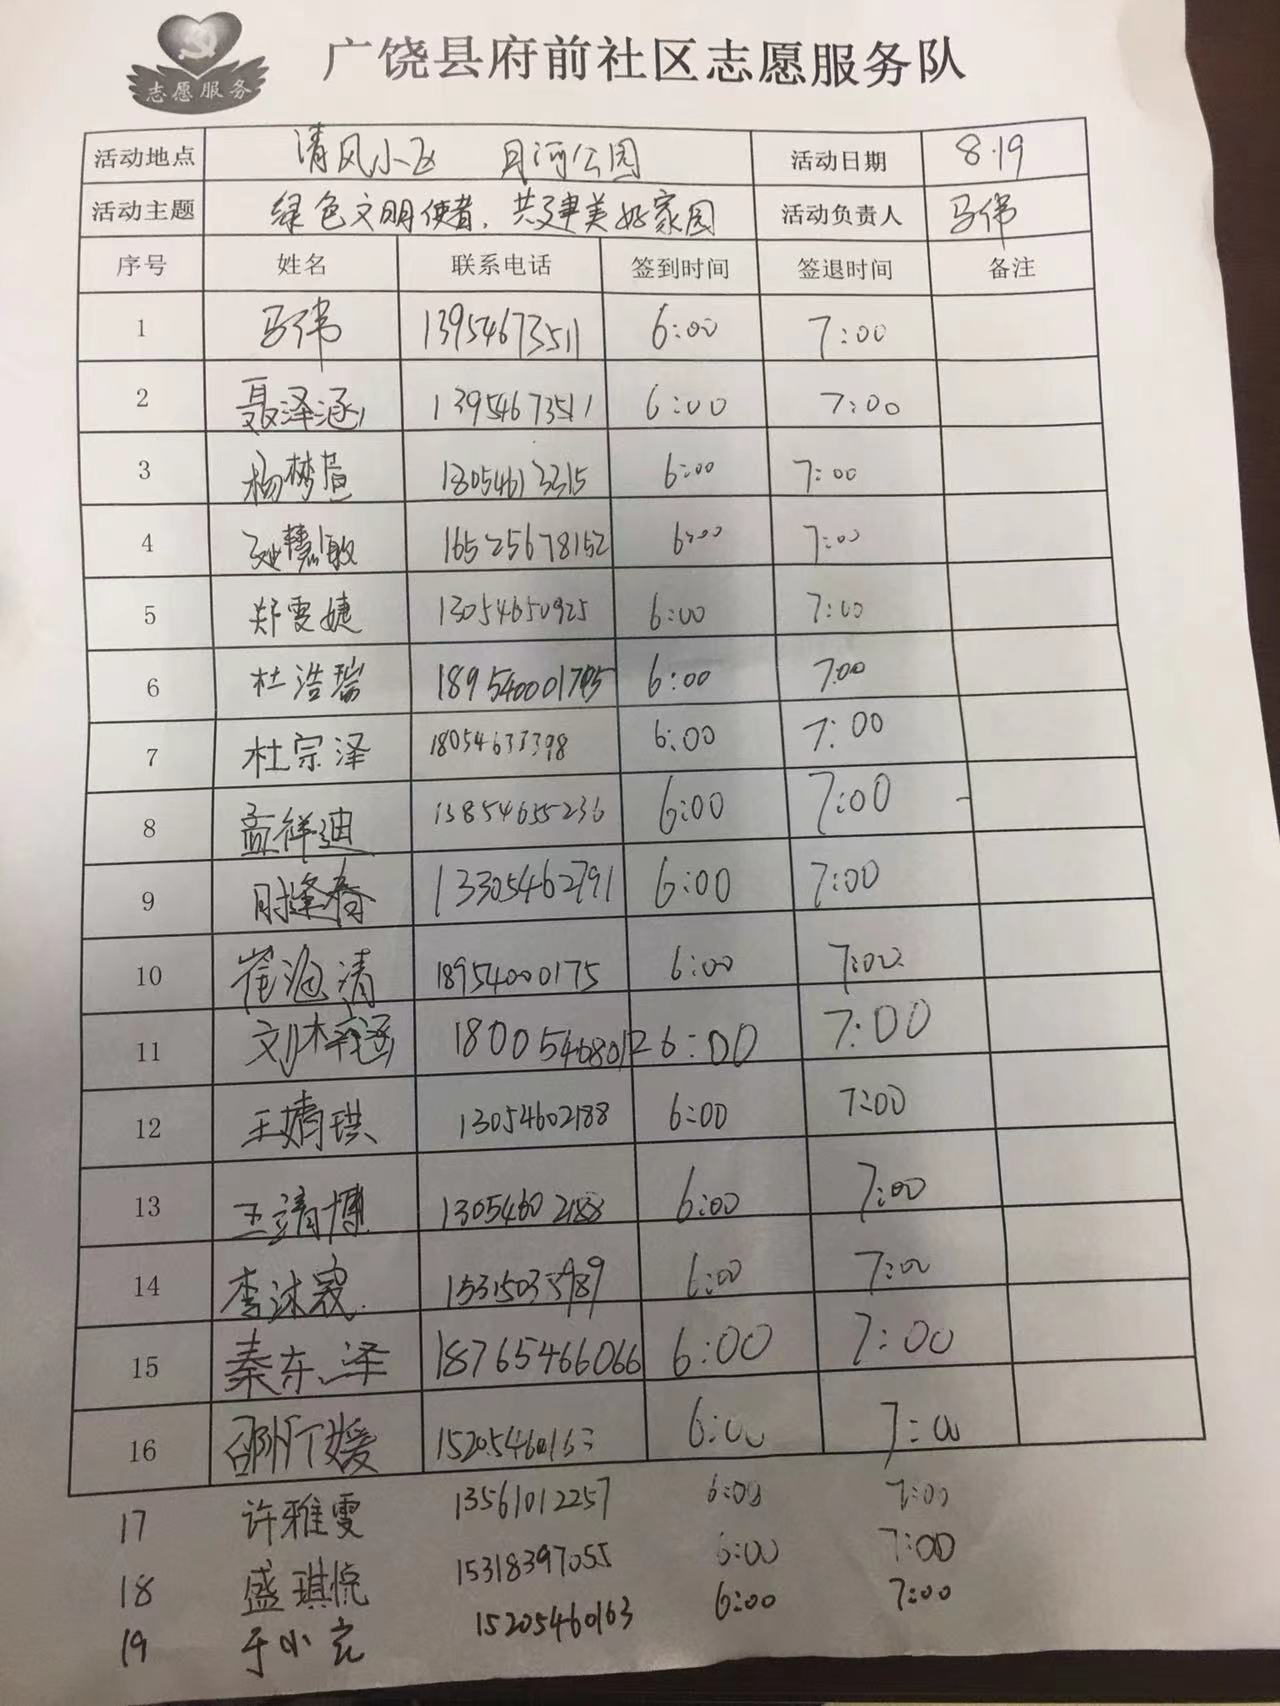 志愿服务
广饶县府前社区志愿服务队
活动地点 清风小区 月河公园 活动日期 8.19
活动主题 绿色文明使者，共建美好家园 活动负责人 马伟
序号 姓名 联系电话 签到时间 签退时间 备注
1 马伟 13954673511 6:00 7:00
2 聂泽涵 13954673511 6:00 7:00
3 杨梦萱 18054613315 6:00 7:00
4 慧敏 16525678152 6:00 7:00
5 郑雯婕 13054650925 6:00 7:00
6 杜浩瑞 6:00 7:00
7 杜宗泽 18054633398 6:00 7:00
8 孟祥迪 13854655236 6:00 7:00
9 13305462791 6:00 7:00
10 崔海清 18954000175 6:00 7:00
11 刘梓涵 6:00 7:00
12 王婧琪 13054602188 6:00 7:00
13 王靖博 13054602188 6:00 7:00
14 李沐宸 6:00 7:00
15 秦东泽 18765466066 6:00 7:00
16 15205460163 6:00 7:00
17 许雅雯 13561012257 6:00 7:00
18 盛琪悦 15318397055 6:00 7:00
19 于小 15205460163 6:00 7:00